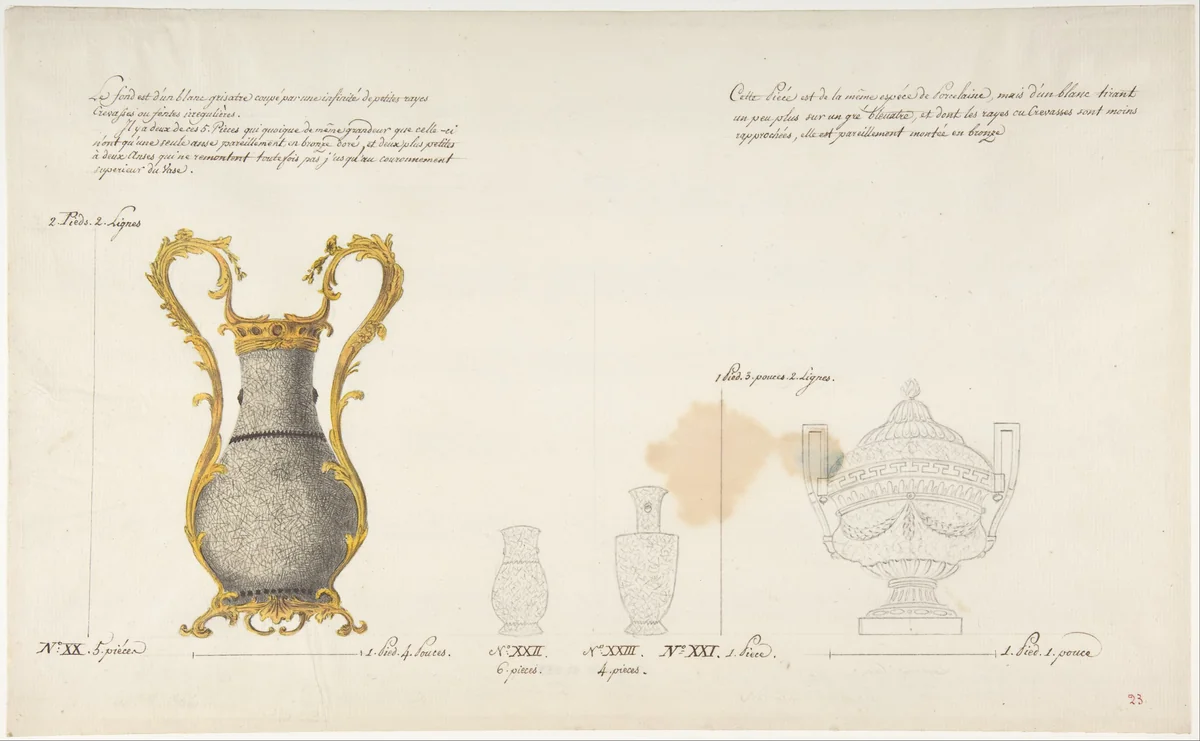 Le fond est d'un blanc grisatre coupé par une infinité de petites rayes
Crevasses ou fentes irregulières.
Il y a deux de ces 5. Pièces qui quoique de même grandeur que celle-ci
n'ont qu'une seule anse pareillement en bronze doré, et deux plus petites
à deux Anses qui ne remontent toutefois pas j'usqu'au couronnement
superieur du Vase.
Cette Piéce est de la même espéce de Porcelaine, mais d'un blanc tirant
un peu plus sur un gré bleuatre, et dont les rayes ou Crevasses sont moins
rapprochés, elle est pareillement montée en bronze
2. Pieds. 2. Lignes
1 Pied. 3. pouces. 2. Lignes.
Nº XX. 5. piéces
1. Pied. 4. Pouces.
Nº XXII.
6. pieces.
Nº XXIII.
4. pieces.
Nº XXI. 1. Piece.
1. Pied. 1. pouce
23